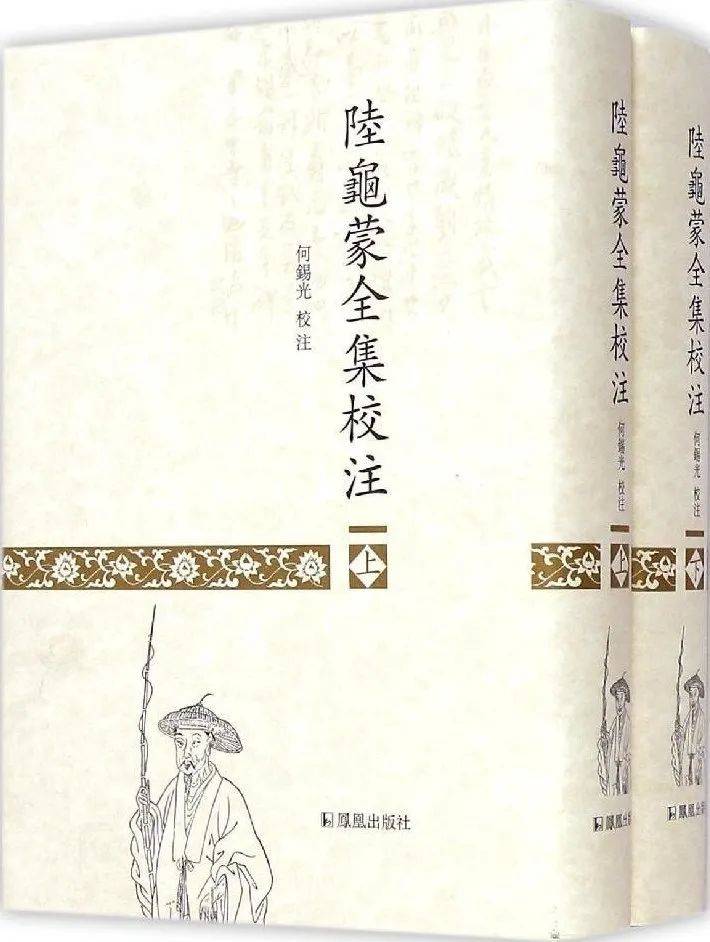 陸龜蒙全集校注
何錫光 校注
上
鳳凰出版社
陸龜蒙全集校注
何錫光 校注
上
鳳凰出版社
陸龜蒙全集校注
何錫光 校注
下
鳳凰出版社